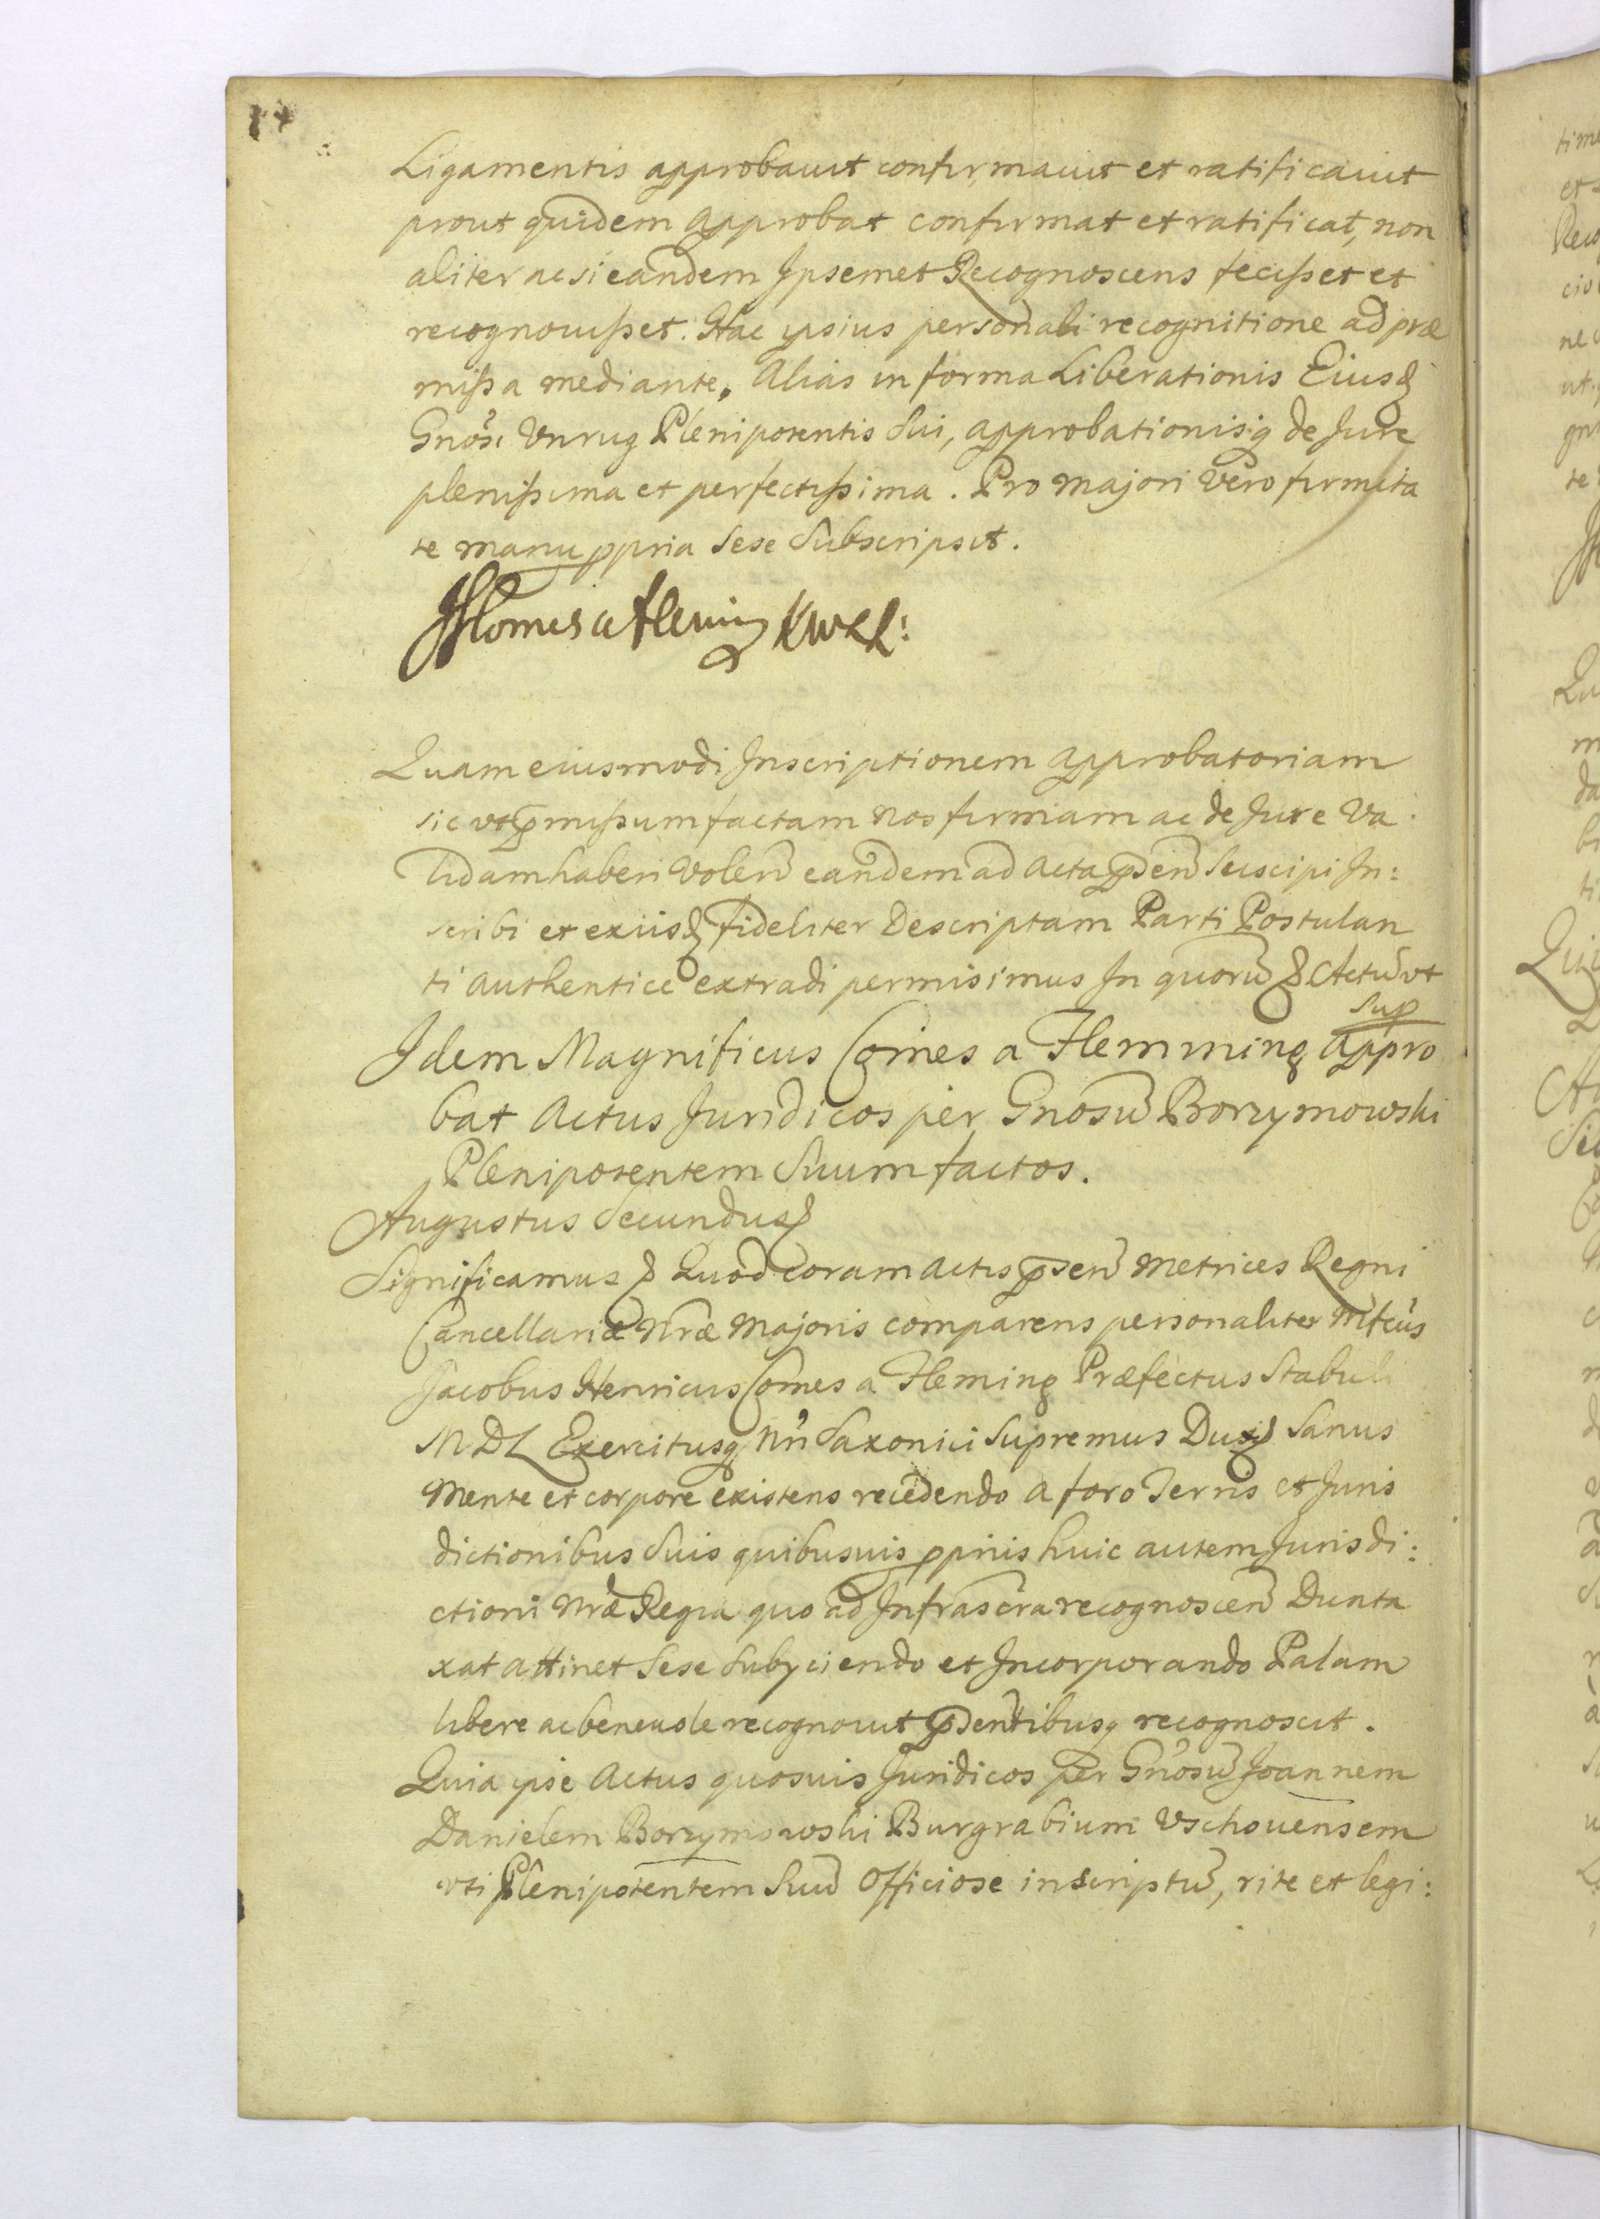 14
Ligamentis approbauit confirmauit et ratificauit
prout quidem approbat confirmat et ratificat, non
aliter ac si eandem Ipsemet Recognoscens fecisset et
recognouisset. Hac ipsius personali recognitione ad præ
missa mediante, Alias in forma Liberationis Eiusd
Gnosi Vnrug Plenipotentis Sui, approbationisq de Jure
plenissima et perfectissima. Pro majori vero firmita
te manu ppria Sese Subscripsit.
Comes a Fleming
Quam eiusmodi Inscriptionem approbatoriam
sic vt pmissum factam nos firmam ac de Jure Va
lidam haberi volen eandem ad Acta psen Suscipi In:
scribi et ex iisd fideliter Descriptam Parti Postulan
ti authentice extradi permisimus In quoru & Actu vt
Sup
Idem Magnificus Comes a Flemming Appro
bat Actus Juridicos per Gnosu Borzymowski
Plenipotentem Suum factos.
Augustus Secundus &
Significamus & Quod coram Actis psen Metrices Regni
Cancellariæ Nræ Majoris comparens personaliter Mfcus
Jacobus Henricus Comes a Fleming Præfectus Stabuli
M D L Exercitusq Nri Saxonici Supremus Dux & Sanus
Mente et corpore existens recedendo a foro Terris et Juris
dictionibus Suis quibusuis ppriis huic autem Jurisdi:
ctioni Nræ Regiæ quo ad Infrascra recognoscen Dunta
xat attinet Sese Subyciendo et Incorporando Palam
libere ac beneuole recognouit psentibusq recognoscit.
Quia ipse Actus quosuis Juridicos per Gnosu Joannem
Danielem Borzymowski Burgrabium Vschouensem
vti Plenipotentem Suu Officiose inscriptu, rite et legi: